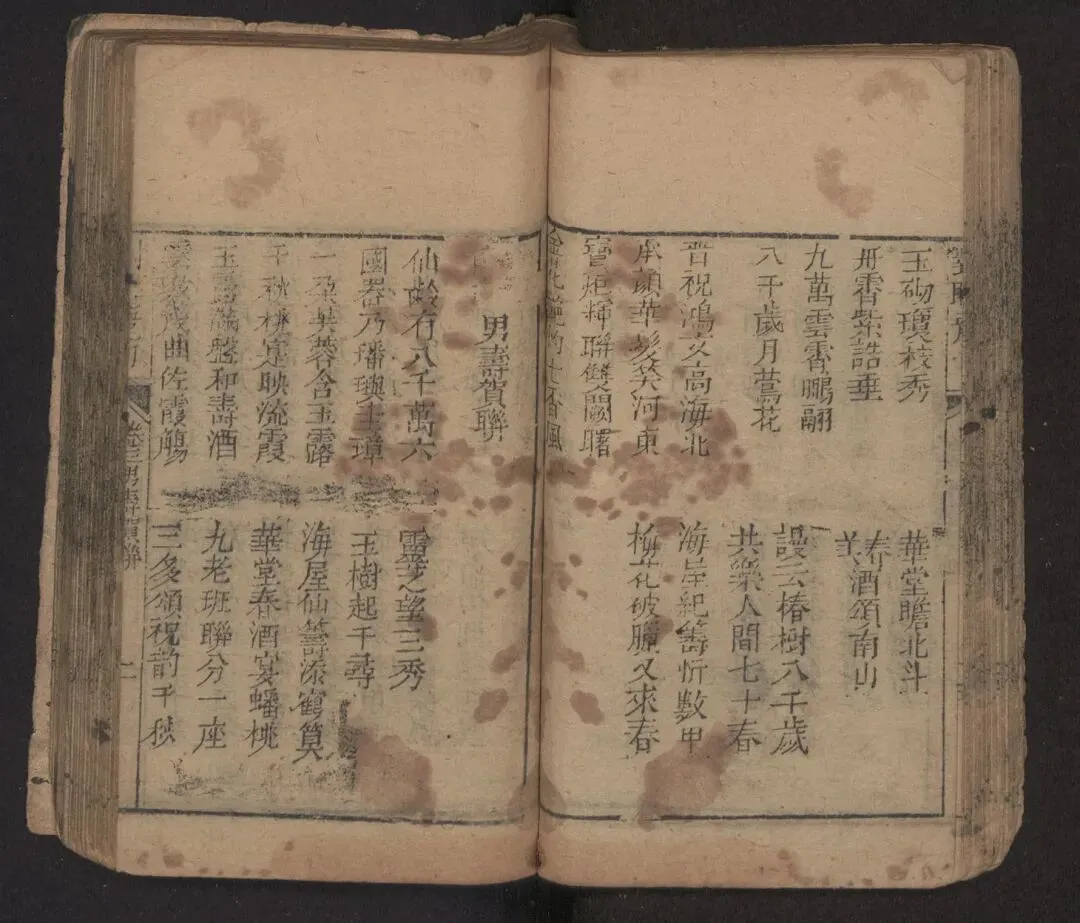 玉砌瓊枝秀
華堂瞻北斗
丹香紫誥垂
春酒頌南山
九萬雲霄鵬翮
八千歲月鶯花
謾云椿樹八千歲
共樂人間七十春
晋祝鴻文高海北
海屋紀籌忻數甲
承顏華髮笑河東
梅花破臘又來春
寶炬輝聯雙闕曙
香風
男壽賀聯
仙齡有八千萬六
靈芝望三秀
國器乃璠璵圭璋
玉樹起千尋
一朶芙蓉含玉露
海屋仙籌添鶴算
千秋桃宴映流霞
華堂春酒宴蟠桃
玉滿盤和壽酒
九老班聯分一座
雲成曲佐霞觴
三多頌祝韵千秋
卷三男壽賀聯